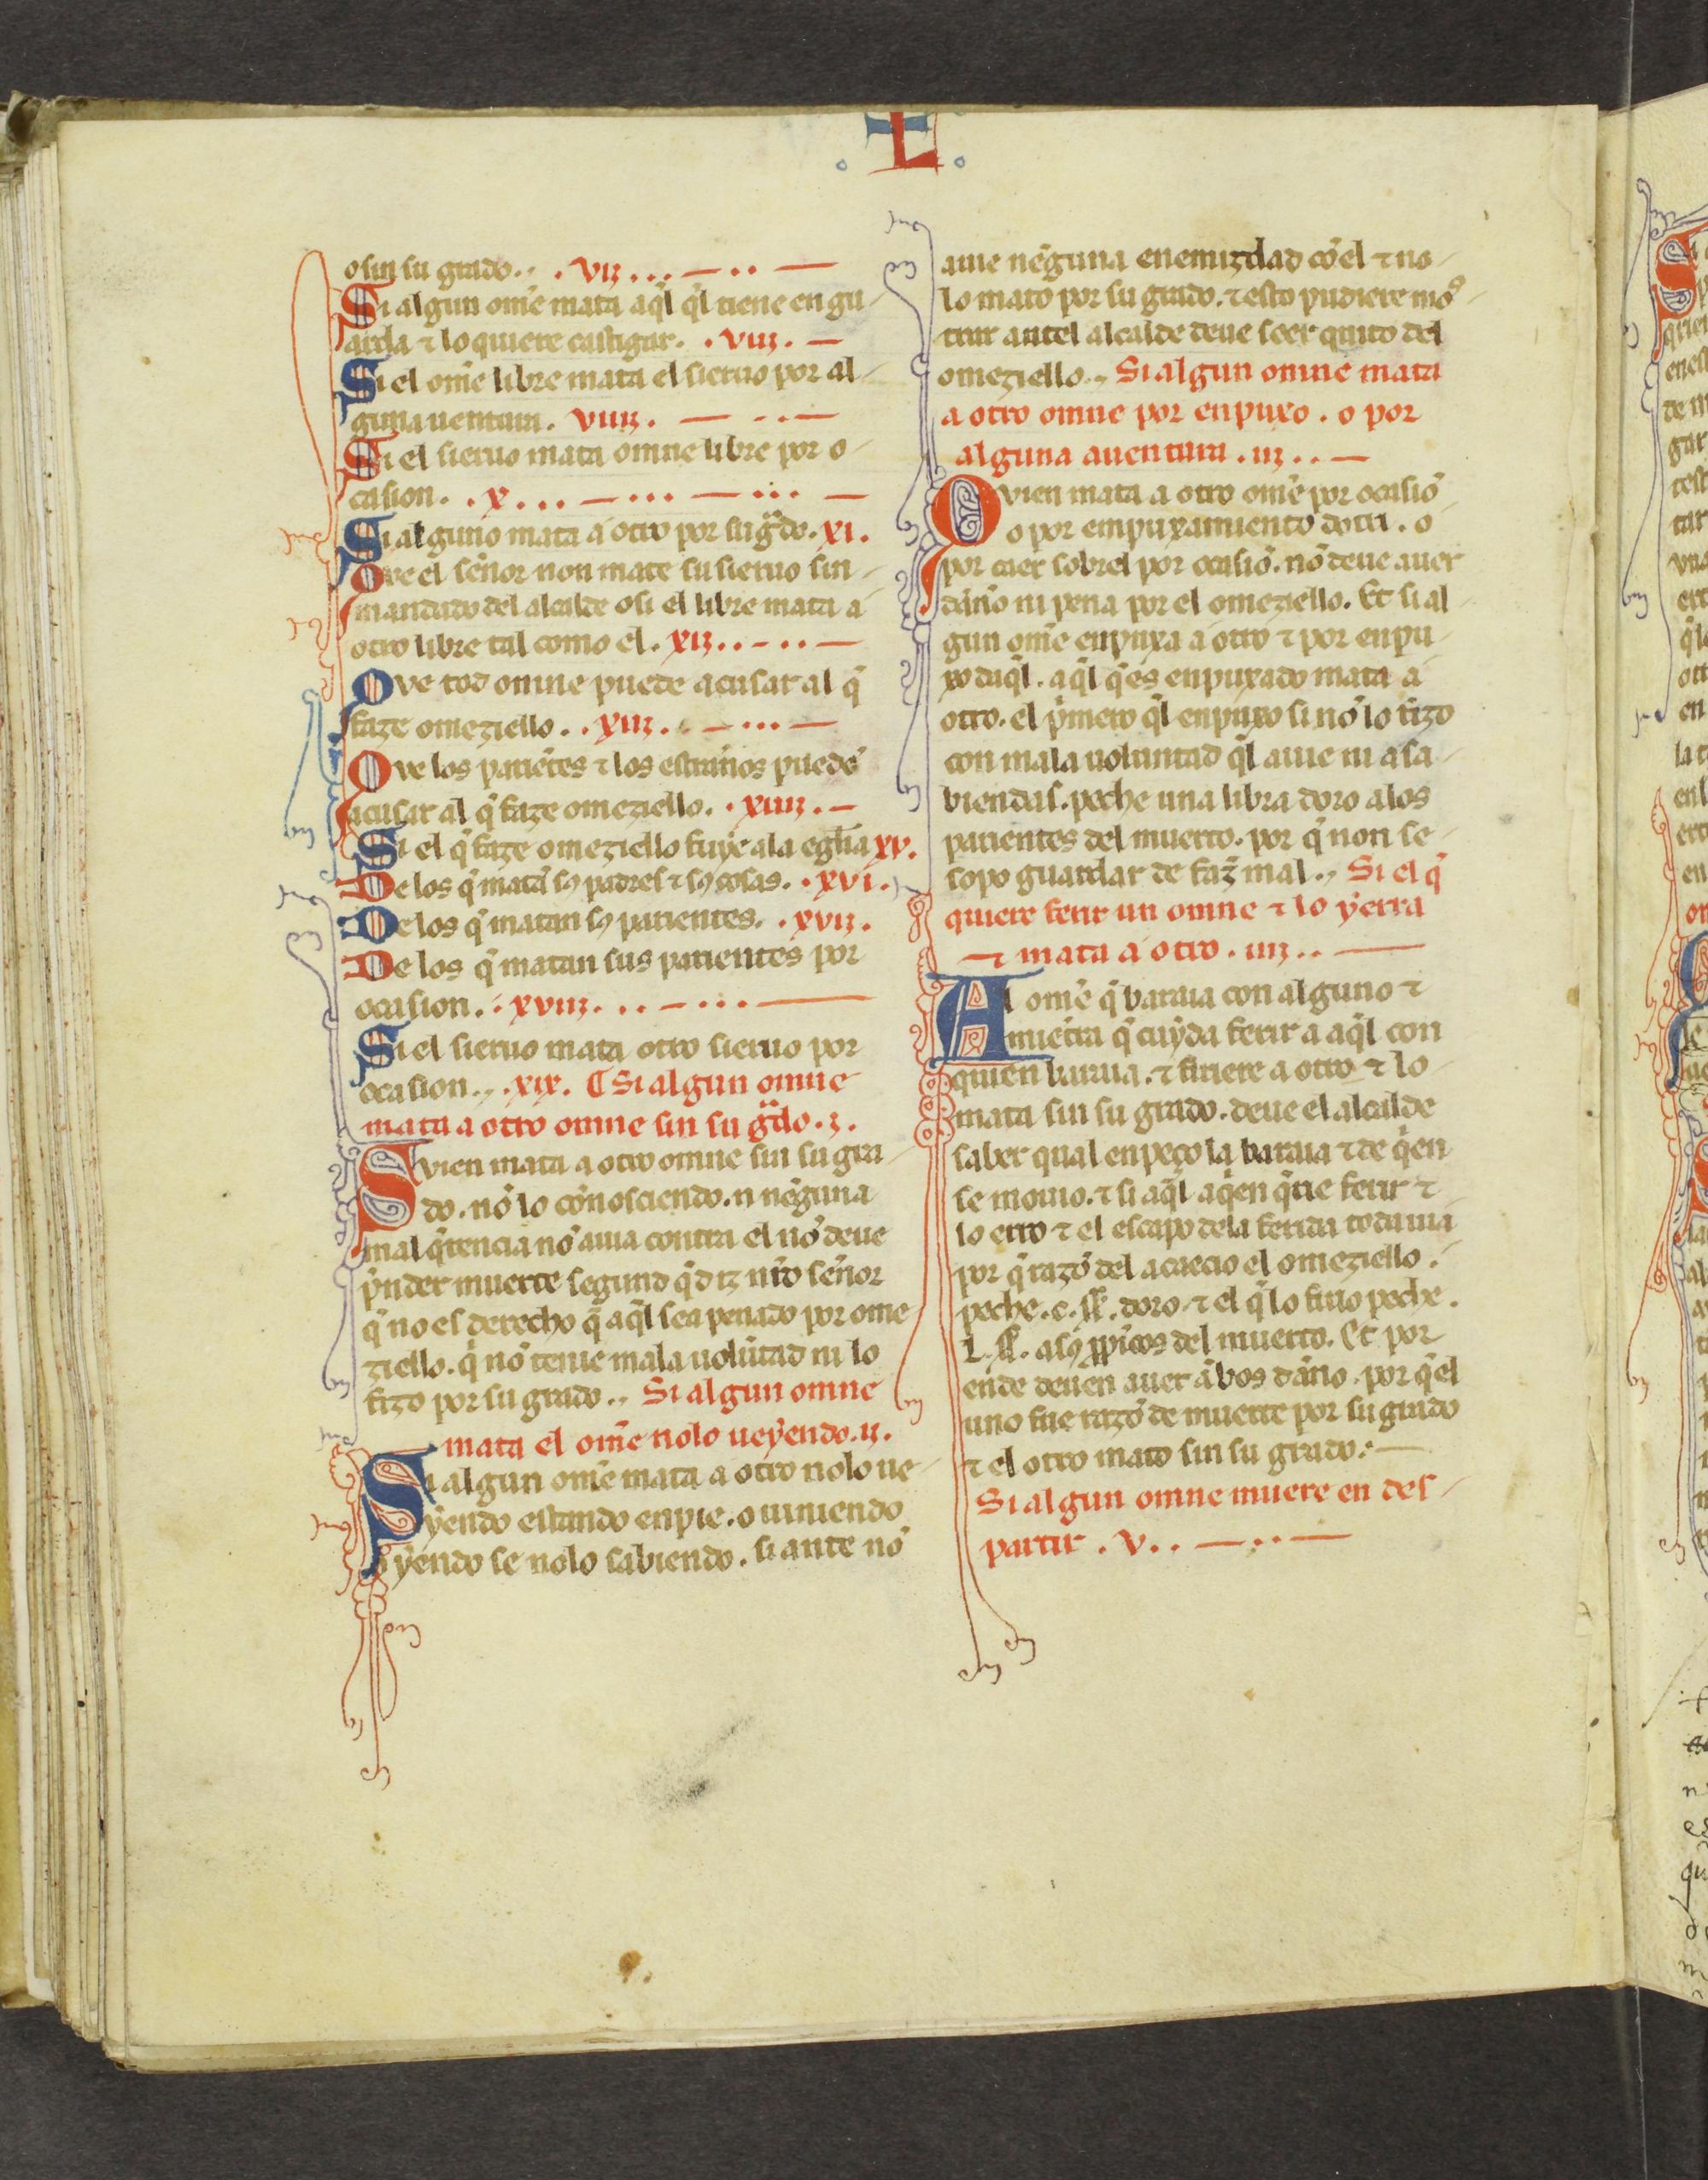 L
o sin su grado. . vii. . .
Si algun om̃e mata aq̃l q̃l tiene en gu
arda ⁊ lo quiere castigar. . viii.
Si el om̃e libre mata el sieruo por al
guna uentura. viiii.
Si el sieruo mata omne libre por o
casion. . x. . .
Si alguno mata a otro por su g̃do. xi.
Que el señor non mate su sieruo sin
mandado del alcalde o si el libre mata a
otro libre tal como el. xii. .
Que tod omne puede acusar al q̃
faze omeziello. . xiii.
Que los pariẽtes ⁊ los estraños puedẽ
acusar al q̃ faze omeziello. . xiiii.
Si el q̃ faze omeziello fuýe ala egłia xv.
De los q̃ matã sꝯ padres ⁊ sꝯ cosas. . xvi.
De los q̃ matan sꝯ parientes. . xvii.
De los q̃ matan sus parientes por
ocasion. . xviii. . .
Si el sieruo mata otro sieruo por
ocasion. . xix. ¶ Si algun omne
mata a otro omne sin su g̃do. i.
Quien mata a otro omne sin su gra
do. nõ lo cõnosciendo. n nẽguna
mal q̃rencia nõ auia contra el nõ deue
p̃nder muerte segund q̃ diz nr̃o señor
q̃ no es derecho q̃ aq̃l sea penado por ome
ziello. q̃ nõ teuie mala uolũtad ni lo
fizo por su grado. . Si algun omne
mata el om̃e nolo ueýendo. ii.
Si algun om̃e mata a otro nolo ue
ýendo estando en pie. o uiniendo
o ýendo se nolo sabiendo. si ante nõ
auie nẽguna enemizdad cõel ⁊ no
lo mato por su grado. ⁊ esto pudiere mõs
trar antel alcalde deue seer quito del
omeziello. . Si algun omne mata
a otro omne por enpuxo. o por
alguna auentura. iii. .
Quien mata a otro om̃e por ocasiõ
o por empuxamiento dotri. o
por caer sobrel por ocasiõ. nõ deue auer
daño ni pena por el omeziello. Et si al
gun om̃e enpuxa a otro ⁊ por enpu
xo daq̃l. aq̃l q̃ es enpuxado mata a
otro. el p̃mero q̃l enpuxo si nõ lo fizo
con mala uoluntad q̃l auie ni a sa
biendas. peche una libra doro alos
parientes del muerto. por q̃ non se
sopo guardar de faz̃ mal. . Si el q̃
quiere ferir un omne ⁊ lo ýerra
⁊ mata a otro. iiii. .
Al om̃e q̃ baraia con alguno ⁊
muẽtra q̃ cuýda ferir a aq̃l con
quien baraia. ⁊ firiere a otro ⁊ lo
mata sin su grado. deue el alcalde
saber qual enpeço la baraia ⁊ de q̃en
se mouio. ⁊ si aq̃l aq̃en q̃rie ferir ⁊
lo erro ⁊ el escapo dela ferida todauia
por q̃ razõ del acaecio el omeziello.
peche. c. ss̃. doro. ⁊ el q̃ lo firio peche.
L. ss̃. a sꝯ ꝓp̃icos del muerto. Et por
ende deuen auer ãbos daño. por q̃ el
uno fue razõ de muerte por su grado
⁊ el otro mato sin su grado.
Si algun omne muere en des
partir. v. .